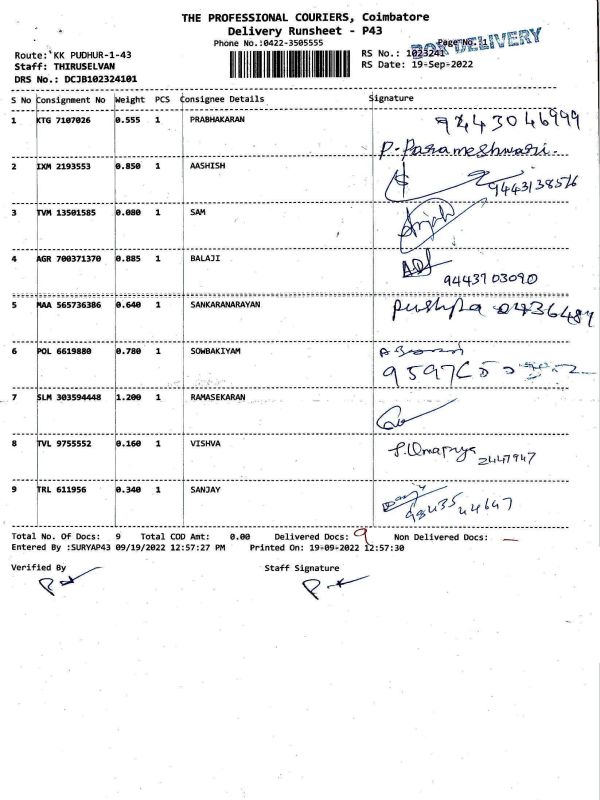 THE PROFESSIONAL COURIERS, Coimbatore
Delivery Runsheet - P43
Phone No.:0422-3505555
Page No. :1
BOX DELIVERY
Route: KK PUDHUR-1-43
RS No.: 1023241
Staff: THIRUSELVAN
RS Date: 19-Sep-2022
DRS No.: DCJB102324101
S No Consignment No Weight PCS Consignee Details Signature
1 KTG 7107026 0.555 1 PRABHAKARAN
P. Parameshwari.
2 IXM 2193553 0.850 1 AASHISH
3 TVM 13501585 0.080 1 SAM
4 AGR 700371370 0.885 1 BALAJI
9443703090
5 MAA 565736386 0.640 1 SANKARANARAYAN Pushpa
6 POL 6619880 0.780 1 SOWBAKIYAM
7 SLM 303594448 1.200 1 RAMASEKARAN
8 TVL 9755552 0.160 1 VISHVA
2447947
9 TRL 611956 0.340 1 SANJAY
Total No. Of Docs: 9 Total COD Amt: 0.00 Delivered Docs: 9 Non Delivered Docs: —
Entered By :SURYAP43 09/19/2022 12:57:27 PM Printed On: 19-09-2022 12:57:30
Verified By Staff Signature